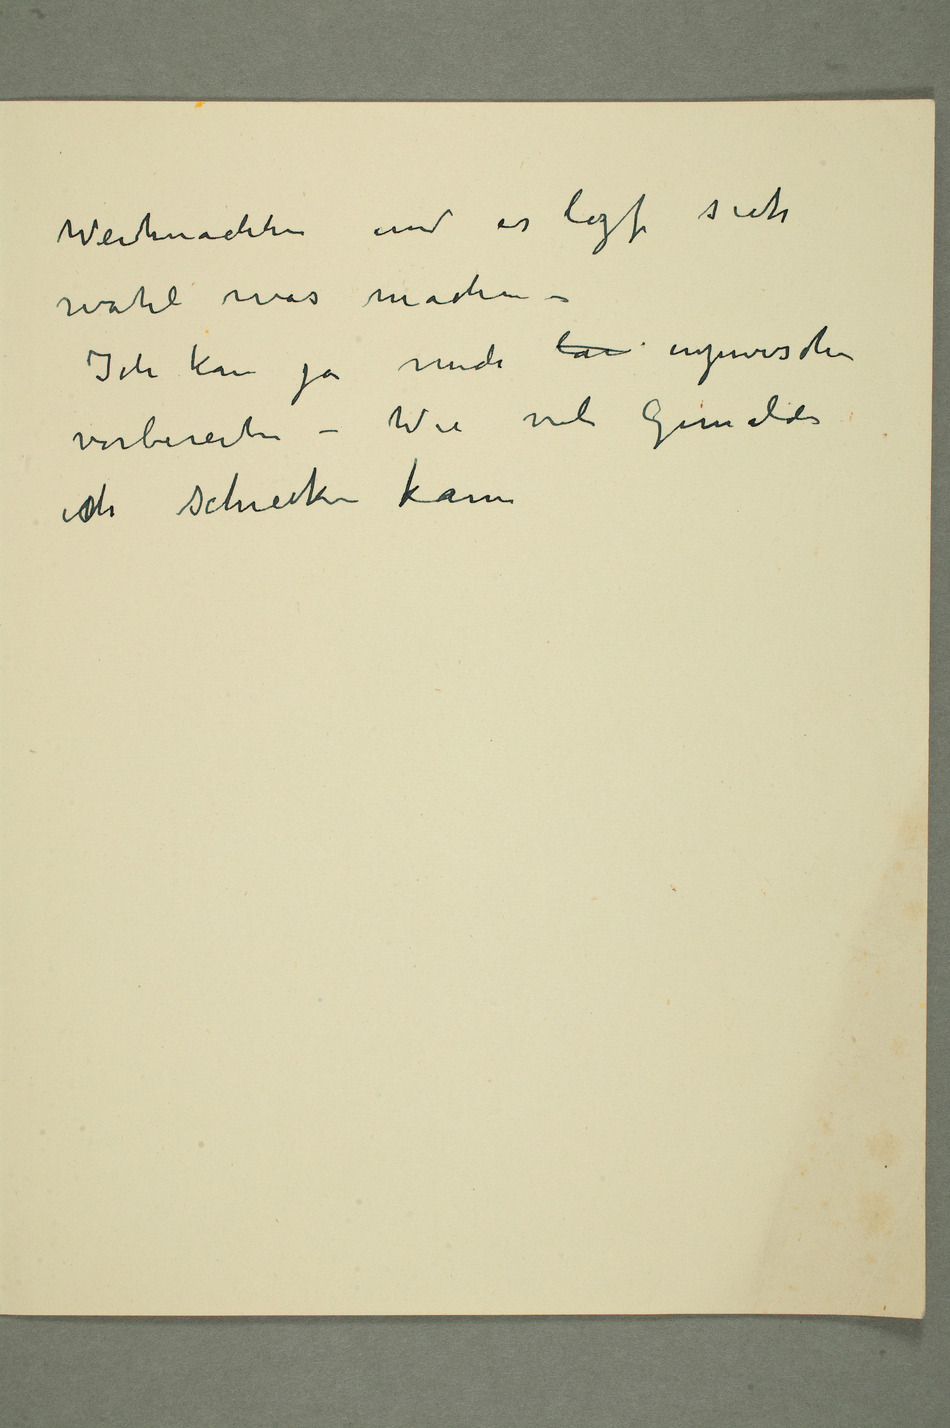 Weihnachten und es legt sich
wohl was machen –
Ich kan ja mich inzwischen
vorbereiten – Wie viele Gemälde
ich schicken kann